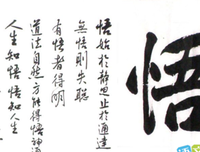 悟
悟始於静思止於通達
無悟則失聪
有悟者得明
道法自然方能得悟神通
人生知悟悟知人生